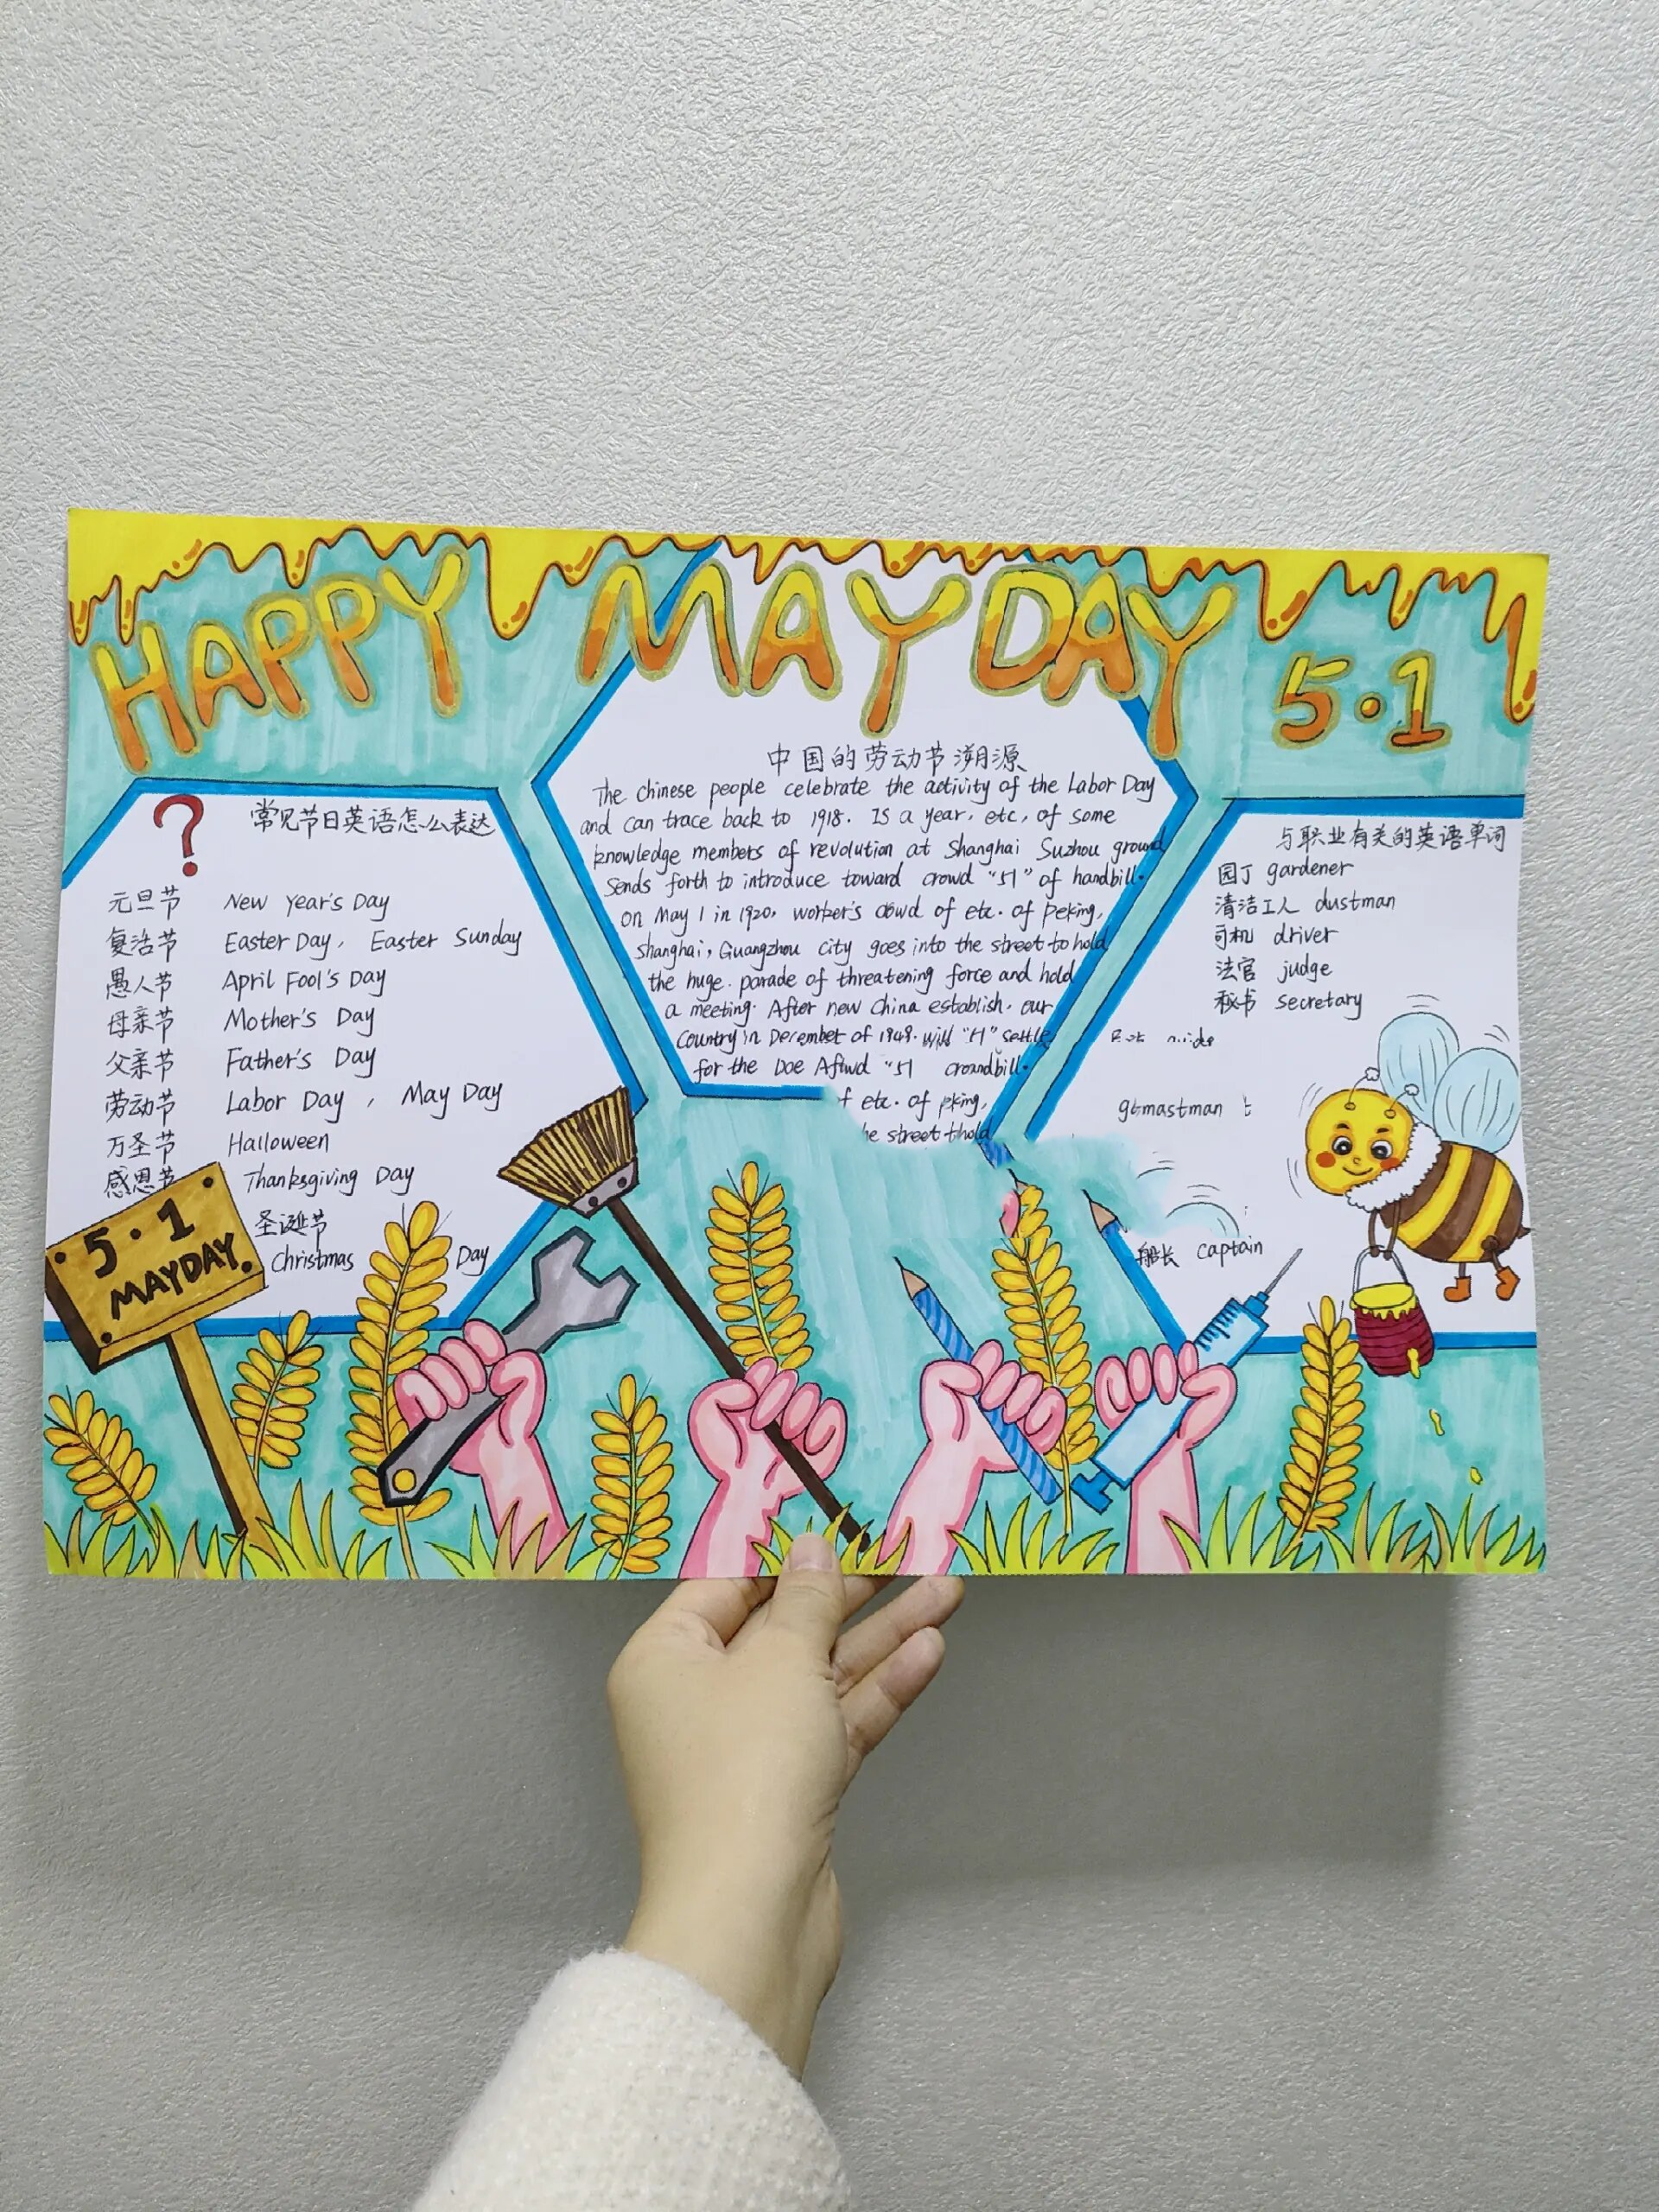 HAPPY MAYDAY 5·1
?
常见节日英语怎么表达
元旦节 New Year's Day
复活节 Easter Day, Easter Sunday
愚人节 April Fool's Day
母亲节 Mother's Day
父亲节 Father's Day
劳动节 Labor Day , May Day
万圣节 Halloween
感恩节 Thanksgiving Day
圣诞节
Christmas Day
5·1
MAYDAY.
中国的劳动节溯源
The chinese people celebrate the activity of the Labor Day
and can trace back to 1918. Is a year, etc, of some
knowledge members of revolution at Shanghai Suzhou ground
sends forth to introduce toward crowd "51" of handbill.
on May 1 in 1920, worker's of etc. of Peking,
shanghai, Guangzhou city goes into the street to hold
the huge. parade of threatening force and hold
a meeting. After new China establish. our
country in December of 1949. will settle
for the "51
f etc. of pking,
he street thold
与职业有关的英语单词
园丁 gardener
清洁工人 dustman
司机 driver
法官 judge
秘书 secretary
gtmastman t
船长 captain